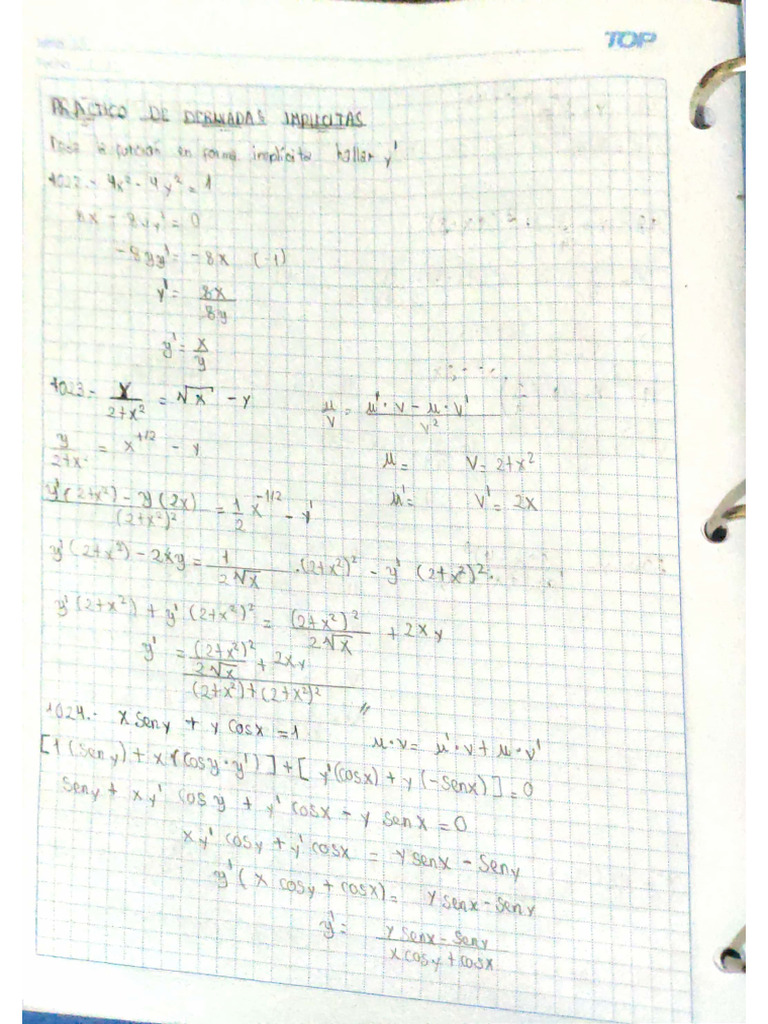 TOP
PRÁCTICO DE DERIVADAS IMPLICITAS
función en forma implícita hallar y'
1022.- 4x² - 4y² = 1
8x - 8yy' = 0
-8yy' = -8x (-1)
y' = 8x / 8y
y' = x / y
1023.- y / 2+x² = √x - y
μ / v = μ'·v - μ·v' / v²
y / 2+x² = x^{+1/2} - y
μ = v = 2+x²
μ' = v' = 2x
y'(2+x²) - y(2x) / (2+x²)² = 1/2 x^{-1/2} - y'
y'(2+x²) - 2xy = 1 / 2√x ·(2+x²)² - y'(2+x²)²
y'(2+x²) + y'(2+x²)² = (2+x²)² / 2√x + 2xy
y' = (2+x²)² / 2√x + 2xy / (2+x²)+(2+x²)² //
1024.- x seny + y cosx = 1
μ·v = μ'·v + μ·v'
[1(seny) + x(cosy·y')] + [y'(cosx) + y(-senx)] = 0
seny + xy' cosy + y' cosx - y senx = 0
xy' cosy + y' cosx = y senx - seny
y'(x cosy + cosx) = y senx - seny
y' = y senx - seny / x cosy + cosx